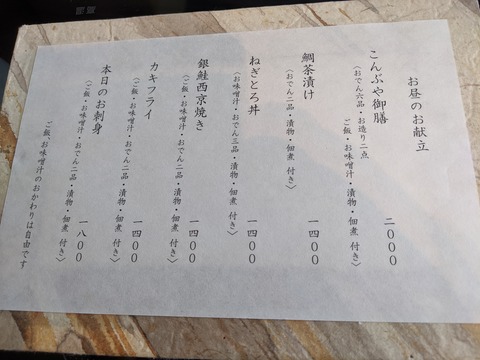 お昼のお献立
こんぶや御膳
〈おでん六品・お造り二点
ご飯・お味噌汁・漬物・佃煮 付き〉
二〇〇〇
鯛茶漬け
〈おでん二品・漬物・佃煮 付き〉
一四〇〇
ねぎとろ丼
〈お味噌汁・おでん三品・漬物・佃煮 付き〉
一四〇〇
銀鮭西京焼き
〈ご飯・お味噌汁・おでん二品・漬物・佃煮 付き〉
一四〇〇
カキフライ
〈ご飯・お味噌汁・おでん二品・漬物・佃煮 付き〉
一四〇〇
本日のお刺身
〈ご飯・お味噌汁・おでん二品・漬物・佃煮 付き〉
一八〇〇
ご飯、お味噌汁のおかわりは自由です